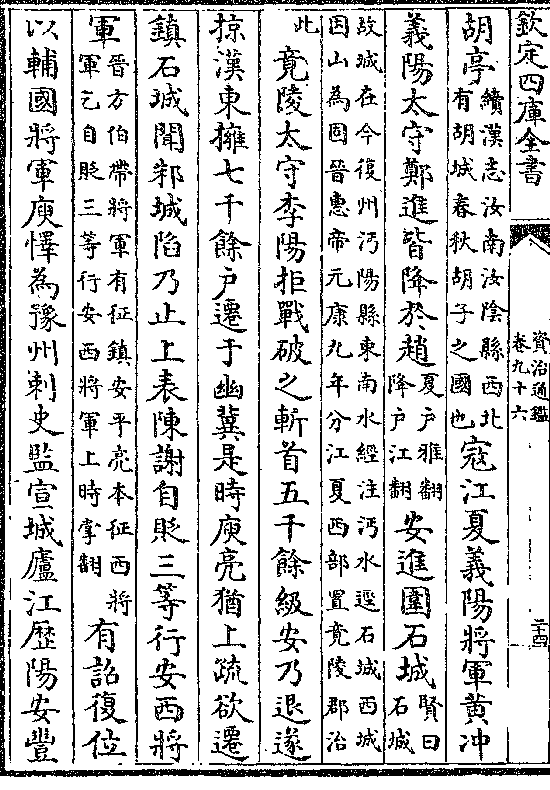 欽定四庫全書
資治通鑑
卷九十六
二十四
胡亭續漢志汝南汝陰縣西北有胡城春秋胡子之國也寇江夏義陽將軍黃冲
義陽太守鄭進皆降於趙夏户雅翻降户江翻安進圍石城賢曰石城
故城在今復州沔陽縣東南水經注沔水逕石城西城因山為固晉惠帝元康九年分江夏西部置竟陵郡治
此竟陵太守李陽拒戰破之斬首五千餘級安乃退遂
掠漢東擁七千餘户遷于幽冀是時庾亮猶上疏欲遷
鎮石城聞邾城陷乃止上表陳謝自貶三等行安西將
軍晉方伯帶將軍有征鎮安平亮本征西將軍乞自貶三等行安西將軍上時掌翻有詔復位
以輔國將軍庾懌為豫州刺史監宣城廬江歷陽安豐